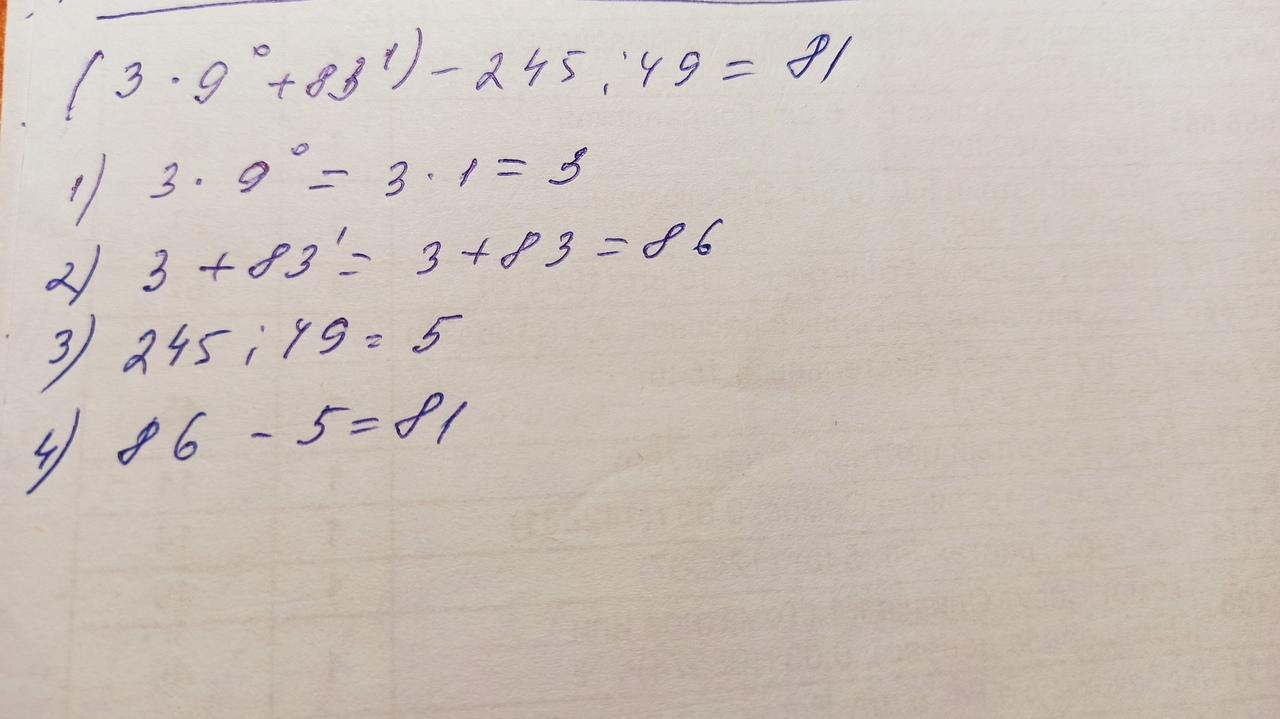 (3 · 9⁰ + 83¹) - 245 : 49 = 81
1) 3 · 9⁰ = 3 · 1 = 3
2) 3 + 83¹ = 3 + 83 = 86
3) 245 : 49 = 5
4) 86 - 5 = 81